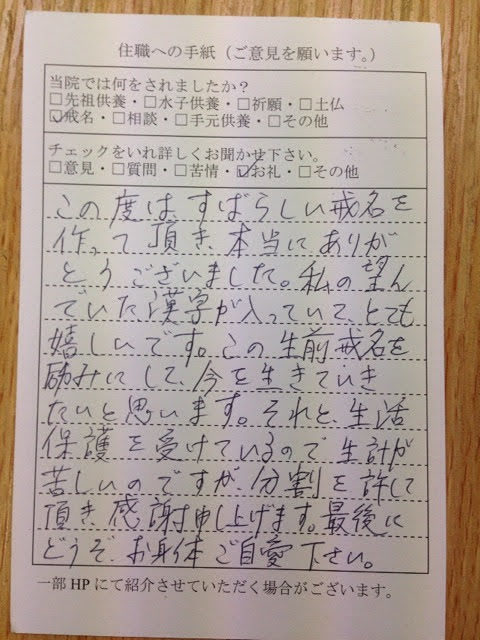 住職への手紙(ご意見を願います。)
当院では何をされましたか?
□先祖供養・□水子供養・□祈願・□土仏
☑戒名・□相談・□手元供養・□その他
チェックをいれ詳しくお聞かせ下さい。
□意見・□質問・□苦情・☑お礼・□その他
この度は すばらしい戒名を
作って頂き、本当にありが
とうございました。私の望ん
でいた漢字が入っていて、とても
嬉しいです。この生前戒名を
励みにして、今を生きていき
たいと思います。それと、生活
保護を受けているので生計が
苦しいのですが、分割を許して
頂き、感謝申し上げます。最後に
どうぞ、お身体ご自愛下さい。
一部HPにて紹介させていただく場合がございます。